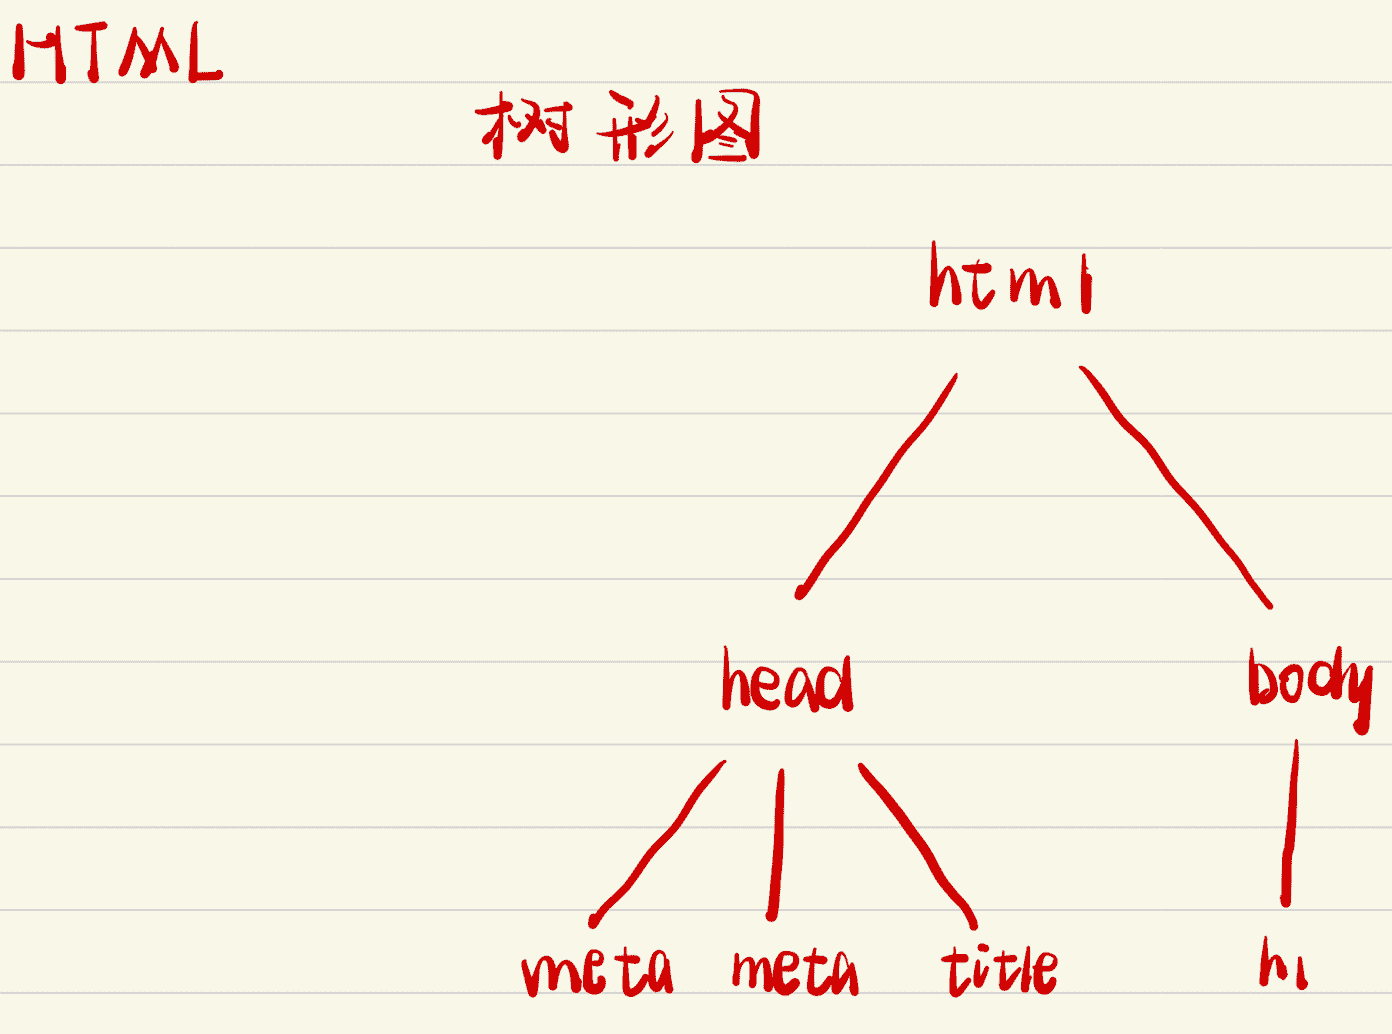 HTML
树形图
html
head body
meta meta title h1